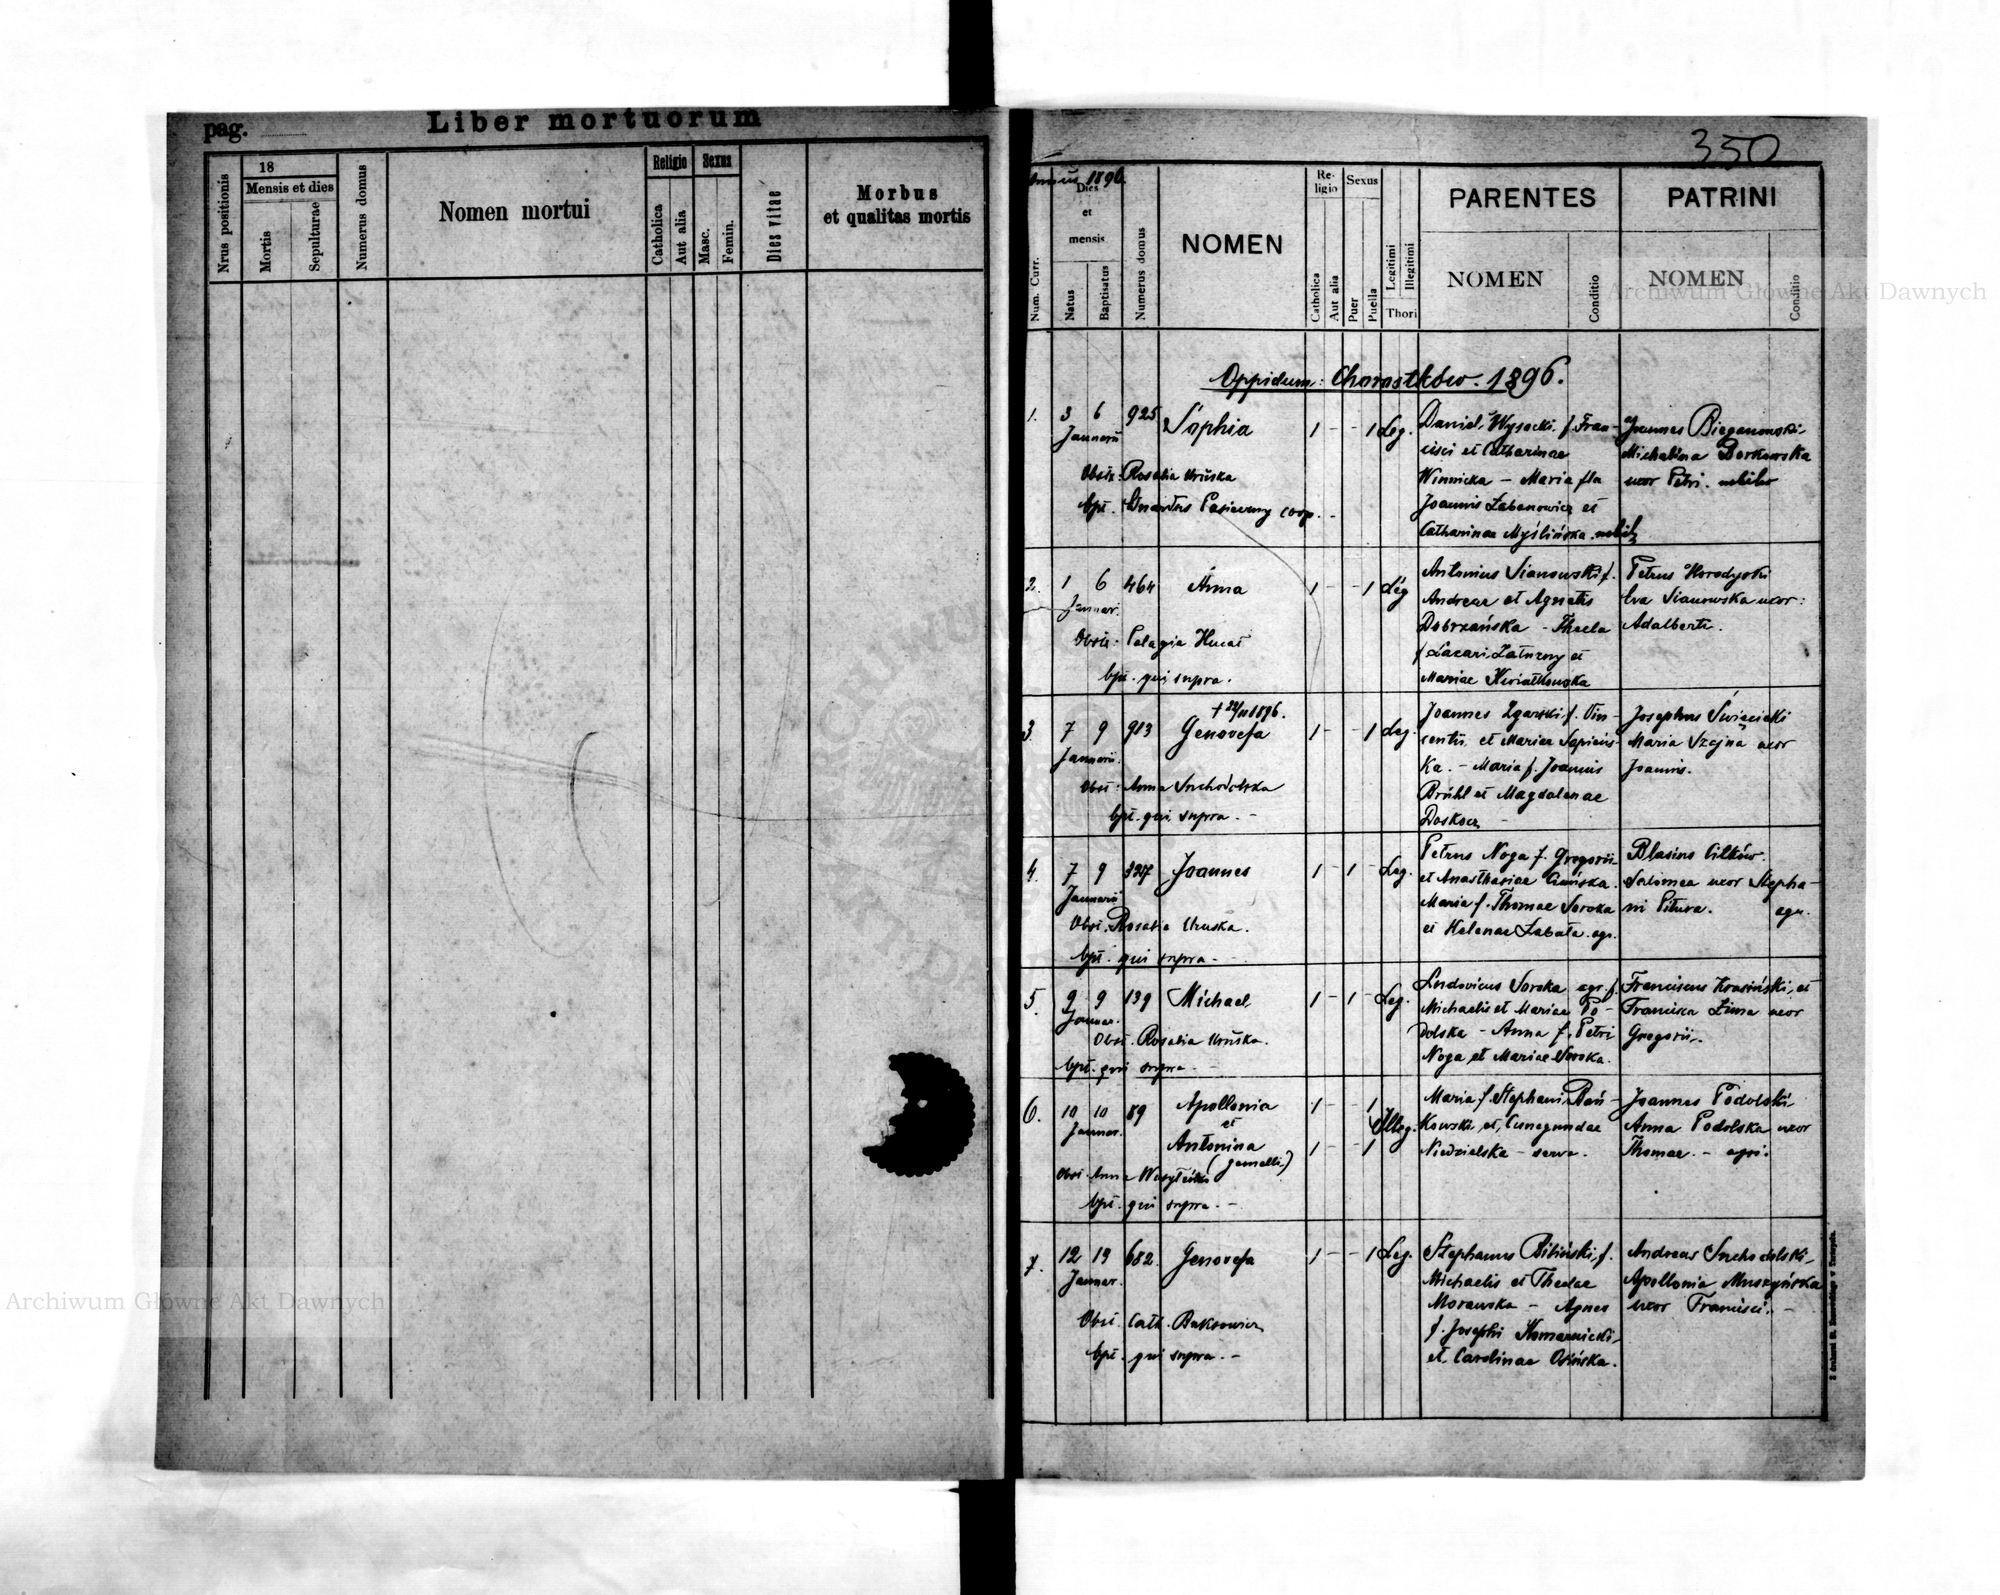 pag.
Liber mortuorum
Nrus positionis
18
Mensis et dies
Mortis
Sepulturae
Numerus domus
Nomen mortui
Religio
Catholica
Aut alia
Sexus
Masc.
Femin.
Dies vitae
Morbus
et qualitas mortis
350
1896.
Num. Curr.
Dies
et
mensis
Natus
Baptisatus
Numerus domus
NOMEN
Re-
ligio
Catholica
Aut alia
Sexus
Puer
Puella
Legitimi
Illegitimi
Thori
PARENTES
NOMEN
Conditio
PATRINI
NOMEN
Conditio
Archiwum Główne Akt Dawnych
Oppidum: Chorostków. 1896.
1. 3 6 925 Sophia 1 - - 1 Leg.
Januarii
Obst: Rosalia Uruska
bpt. Pasierny coop.
Daniel Wysocki f. Fran-
cisci et Catharinae
Winnicka - Maria fla
Joannis Łabanowicz et
Catharinae Myślińska
Joannes Bieganowski
Michalina Borkowska
uxor Petri.
2. 1 6 464 Anna 1 - - 1 Leg
Januar.
Obst: Pelagia
bpt. qui supra.
Antonius Sianowski f.
Andreae et Agnetis
Dobrzańska - Thecla
f Lazari Załuzny et
Mariae Kwiatkowska
Petrus Horodyski
Eva Sianowska uxor:
Adalberti.
3. 7 9 913 Genovefa 1 - - 1 Leg.
1896.
Januarii.
Obst: Anna Suchodolska
bpt. qui supra. -
Joannes Zgarski f. Vin-
centii et Mariae
ka. - Maria f. Joannis
Brühl et Magdalenae
Doskocz
Josephus Święcicki
Maria Szajna uxor
Joannis.
4. 7 9 327 Joannes 1 - 1 - Leg.
Januarii
Obst. Rosalia Uruska.
bpt. qui supra. -
Petrus Noga f. Gregorii
et Anasthasiae
Maria f. Thomae Soroka
et Helenae Zabala. agr.
Blasius
Salomea uxor Stepha-
ni Pitura. agr.
5. 9 9 139 Michael 1 - 1 - Leg.
Januar.
Obst. Rosalia Uruska.
bpt. qui supra. -
Ludovicus Soroka agr. f.
Michaelis et Mariae Po-
dolska - Anna f. Petri
Noga et Mariae Soroka.
Franciscus Krasiński, et
Francisca Zima uxor
Gregorii.
6. 10 10 89 Apollonia 1 - 1
Januar. et Illeg.
Antonina 1 - 1
(gemelli)
Obst. Anna
bpt. qui supra. -
Maria f. Stephani Bań-
kowski et Cunegundae
Niedzielska - serva.
Joannes Podolski
Anna Podolska uxor
Thomae. - agr.
7. 12 13 682. Genovefa 1 - - 1 Leg.
Januar.
Obst. Cath. Baksowicz
bpt. qui supra. -
Stephanus Bibiński, f.
Michaelis et Theclae
Morawska - Agnes
f. Josephi Komarnicki
et Carolinae Osińska.
Andreas Suchodolski
Apollonia Muszyńska
uxor Francisci. -
Archiwum Główne Akt Dawnych